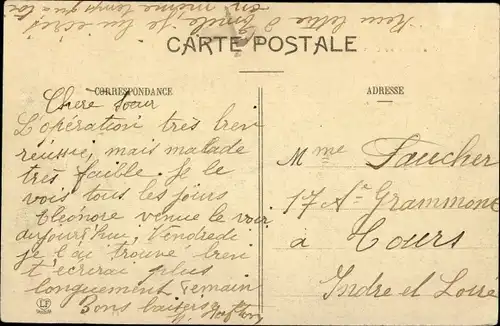 Reçu lettre d'Emile, je lui écris
en même temps qu'à toi
CARTE POSTALE
CORRESPONDANCE
ADRESSE
Chère Soeur
L'opération très bien
réussie, mais malade
très faible. Je le
vois tous les jours
Eléonore venue le voir
aujourd'hui, Vendredi
je t'ai trouvé bien
t'écrirai plus
longuement demain
Bons baisers
Mme Faucher
17 Ae Grammont
à Tours
Indre et Loire